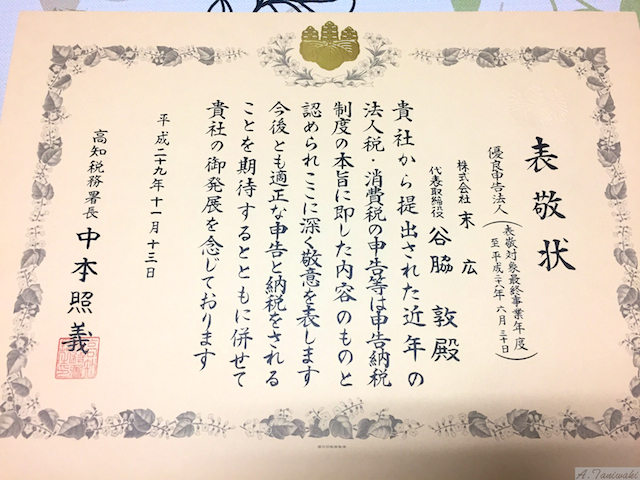 表敬状
優良申告法人
(表敬対象最終事業年度
至平成二十八年六月三十日)
株式会社 末広
代表取締役 谷脇 敦殿
貴社から提出された近年の
法人税・消費税の申告等は申告納税
制度の本旨に即した内容のものと
認められここに深く敬意を表します
今後とも適正な申告と納税をされる
ことを期待するとともに併せて
貴社の御発展を念じております
平成二十九年十一月十三日
高知税務署長 中本照義
A. Taniwaki